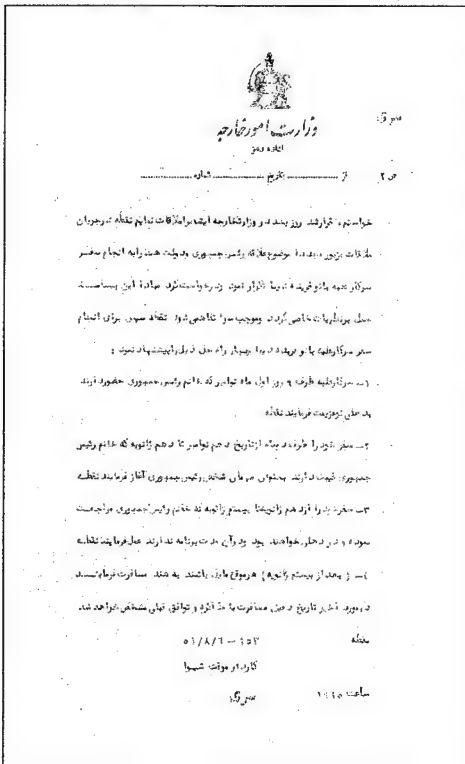 وزارت امور خارجه
اداره رمز
سری
ص ۲ از ........ بتاریخ ........ شماره ........
خواستم، قرار شد روز بعد در وزارتخارجه ایشانرا ملاقات نمایم نقطه در جریان
ملاقات مزبور مجددا موضوع علاقه رئیس جمهوری و دولت هند را به انجام سفر
سرکار علیه بانو فریده دیبا تکرار نمود و درخواست کرد مبادا این
حمل بر نظریات خاصی گردد و موجب سوء تفاهمی شود نقطه سپس برای انجام
سفر سرکار علیه بانو فریده دیبا چهار راه حل ذیل را پیشنهاد نمود :
۱ــ سرکار علیه ظرف ۹ روز اول ماه نوامبر که خانم رئیس جمهوری حضور دارند
به دهلی نو عزیمت فرمایند نقطه
۲ــ سفر خود را ظرف دو ماه از تاریخ دهم نوامبر تا دهم ژانویه که خانم رئیس
جمهوری غیبت دارند بعنوان میهمان شخص رئیس جمهوری آغاز فرمایند نقطه
۳ــ سفر خود را از دهم ژانویه تا بیستم ژانویه که خانم رئیس جمهوری مراجعت
نموده و در دهلی خواهند بود و در آن مدت برنامه ندارند عملی فرمایند نقطه
۴ــ ( بعد از بیستم ژانویه ) هر موقع مایل باشند به هند مسافرت فرمایند
در مورد اخیر تاریخ دقیق مسافرت با مذاکره و توافق قبلی مشخص خواهد شد
نقطه
۱۵۳ – ۵۱/۸/۶
کاردار موقت شیوا
سری
ساعت